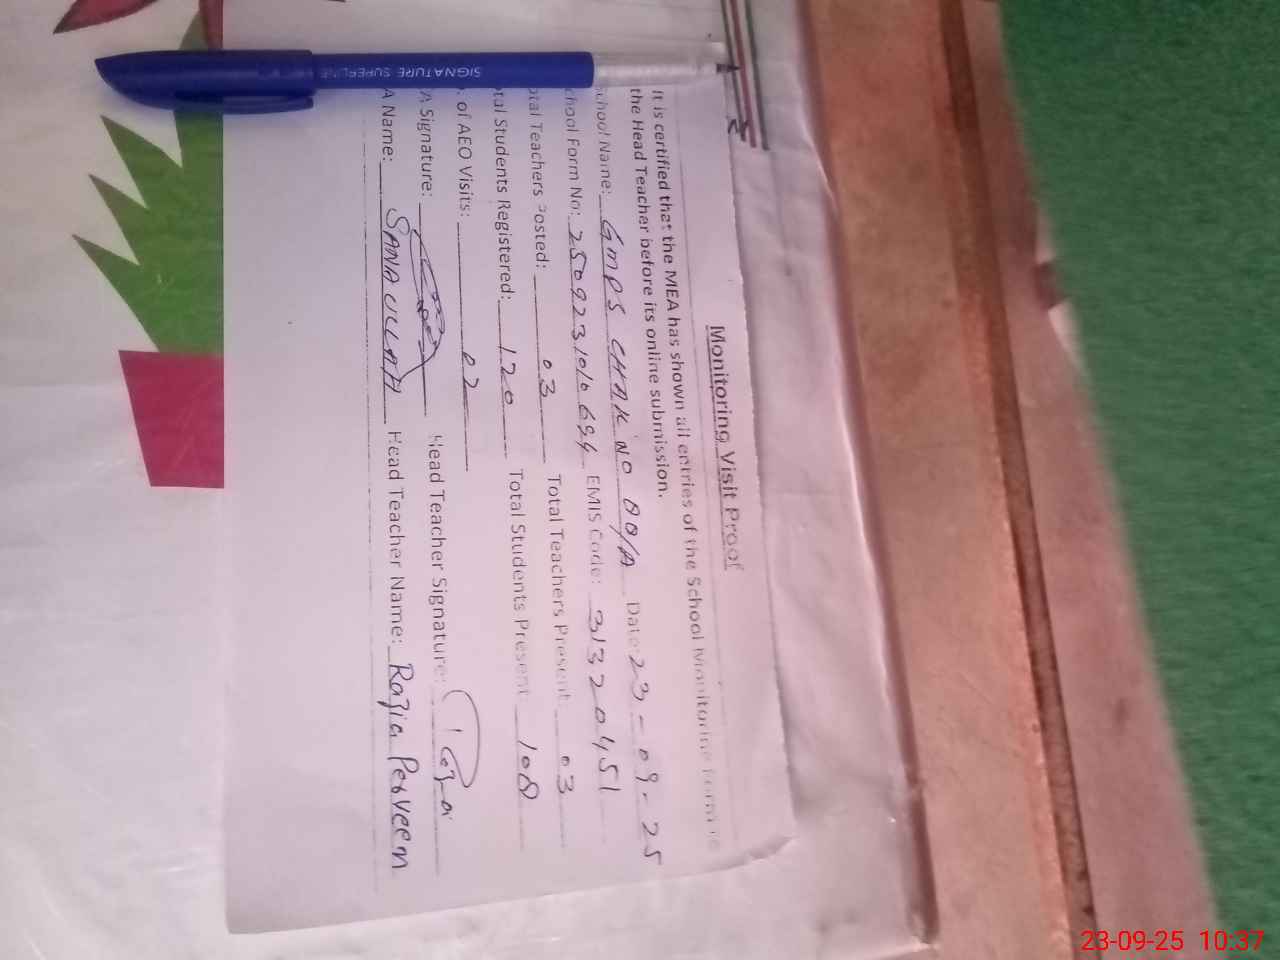 Monitoring Visit Proof
It is certified that the MEA has shown all entries of the School Monitoring Form to
the Head Teacher before its online submission.
chool Name: GMPS CHAK NO 88/A Date: 23-09-25
chool Form No: 250923101069 EMIS Code: 31320451
otal Teachers Posted: 03 Total Teachers Present: 03
otal Students Registered: 120 Total Students Present: 108
. of AEO Visits: 02
A Signature: Head Teacher Signature:
A Name: SANAULLAH Head Teacher Name: Razia Perveen
SIGNATURE SUPERLINE
23-09-25 10:37